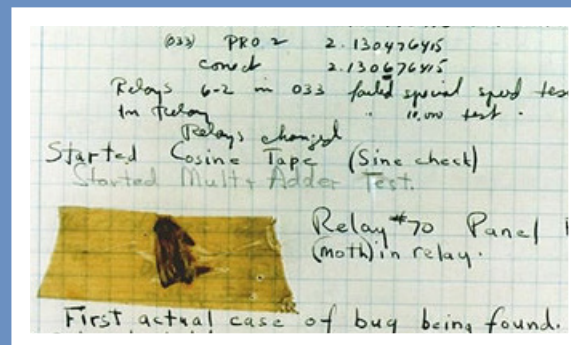 (033) PRO 2 2.130476415
conect 2.130676415
Relays 6-2 in 033 failed special speed tes
In Relay " 10.000 test.
Relays changed
Started Cosine Tape (Sine check)
Started Mult + Adder Test.
Relay #70 Panel
(moth) in relay.
First actual case of bug being found.